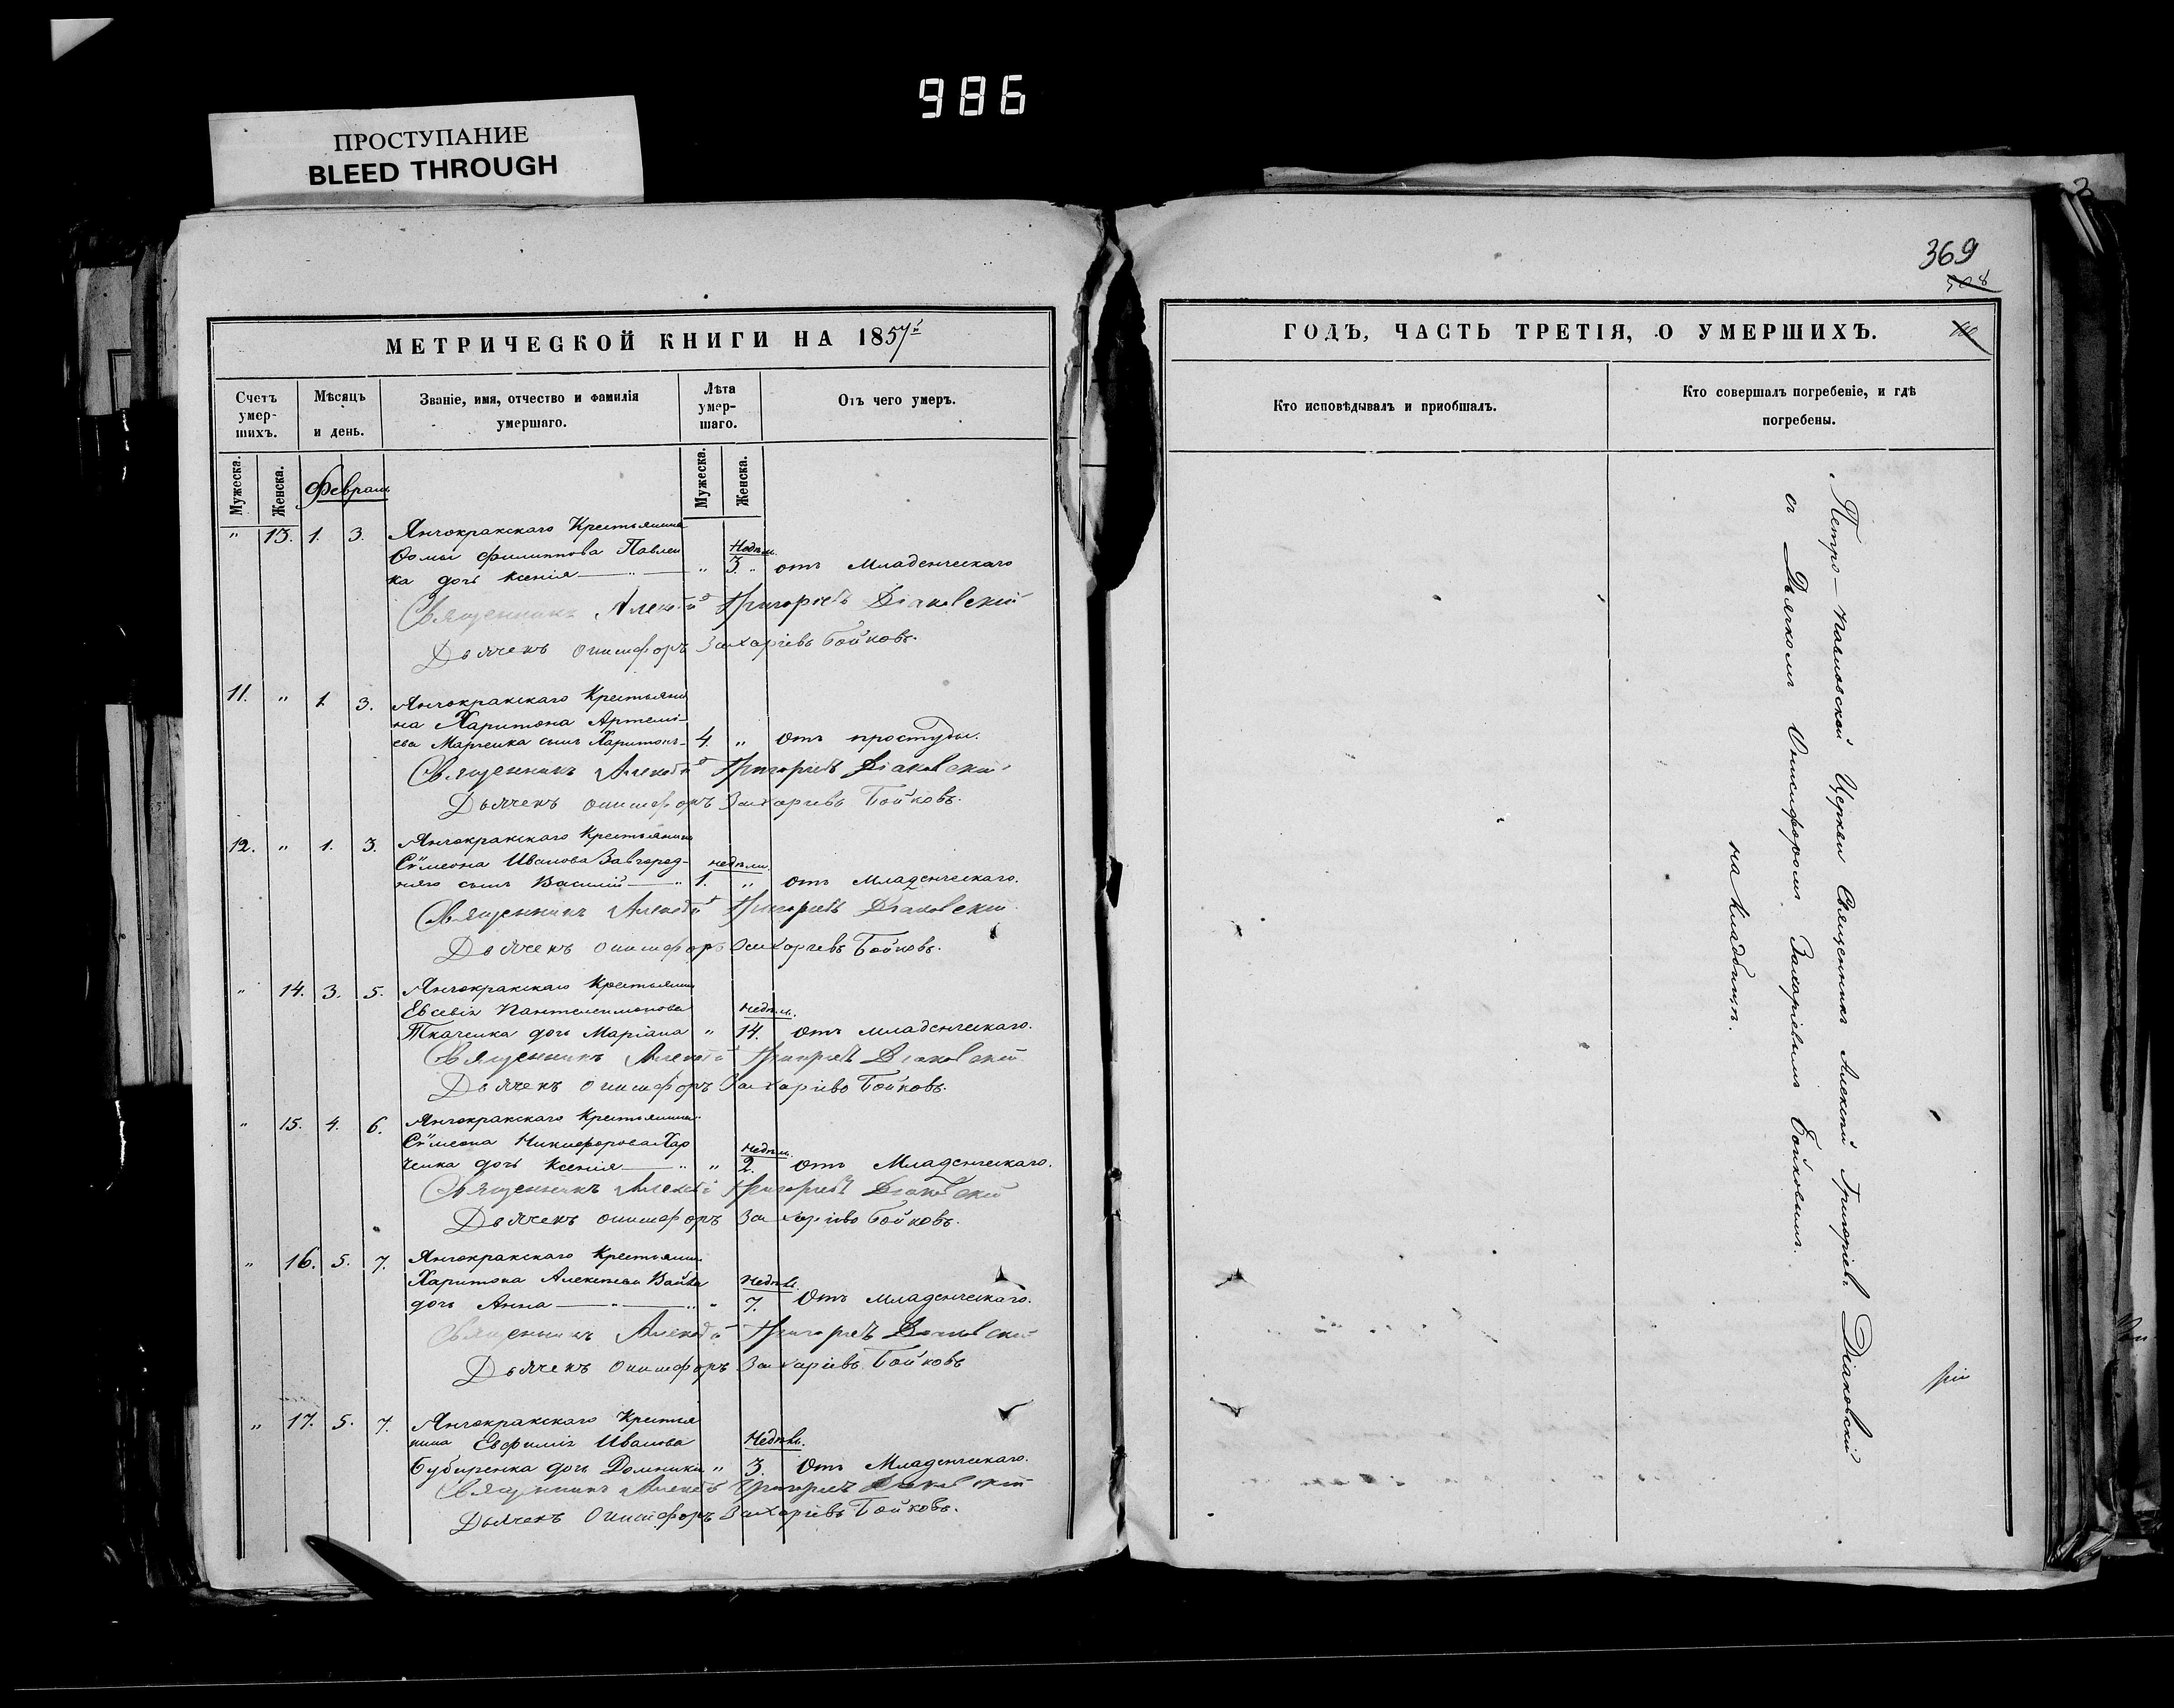 986
ПРОСТУПАНИЕ
BLEED THROUGH
МЕТРИЧЕСКОЙ КНИГИ НА 1857й
Счетъ умер-шихъ.
Мѣсяцъ и день.
Званіе, имя, отчество и фамилія умершаго.
Лѣта умер-шаго.
Отъ чего умеръ.
Мужеска.
Женска.
Мужеска.
Женска.
Февраль
" 13. 1. 3. Янчокракскаго Крестьянина
Ѳомы Филиппова Павлен Недѣли.
ка дочь Ксенія " 3. " отъ Младенческаго
Священникъ Алексѣй Григоріевъ Діаковскій
Дьячекъ Онисифоръ Захаріевъ Бойковъ.
11. " 1. 3. Янчокракскаго Крестьяни
на Харитона Артемі-
ева Марченка сынъ Харитонъ- 4. " Отъ простуды.
Священникъ Алексѣй Григорьевъ Діаковскій
Дьячекъ Онисифоръ Захаріевъ Бойковъ.
12. " 1. 3. Янчокракскаго Крестьянина
Сѵмеона Иванова Завгород- недѣли.
няго сынъ Василій " 1. " отъ Младенческаго.
Священникъ Алексѣй Григорьевъ Діаковскій
Дьячекъ Онисифоръ Захаріевъ Бойковъ.
" 14. 3. 5. Янчокракскаго Крестьянина
Евсевія Пантелеимонова Недѣли.
Ткаченка дочь Маріана " 14. Отъ младенческаго.
Священникъ Алексѣй Григорьевъ Діаковскій
Дьячекъ Онисифоръ Захаріевъ Бойковъ.
" 15. 4. 6. Янчокракскаго Крестьянина
Сѵмеона Никифорова Хар Недѣли.
ченка дочь Ксенія " " 2. отъ Младенческаго.
Священникъ Алексѣй Григорьевъ Діаковскій
Дьячекъ Онисифоръ Захаріевъ Бойковъ.
" 16. 5. 7. Янчокракскаго Крестьянина
Харитона Алексѣева Недѣль.
дочь Анна " " " 7. Отъ младенческаго.
Священникъ Алексѣй Григорьевъ Діаковскій
Дьячекъ Онисифоръ Захаріевъ Бойковъ
" 17. 5. 7. Янчокракскаго Крестья
нина Евфимія Иванова Недѣль.
дочь Домникія " 3. Отъ Младенческаго.
Священникъ Алексѣй Григорьевъ Діаковскій
Дьячекъ Онисифоръ Захаріевъ Бойковъ.
369
ГОДЪ, ЧАСТЬ ТРЕТІЯ, О УМЕРШИХЪ.
Кто исповѣдывалъ и приобщалъ.
Кто совершалъ погребеніе, и гдѣ погребены.
Петро-Павловской Церкви Священникъ Алексѣй Григоріевъ Діаковскій
съ Дьячкомъ Онисифоромъ Захаріевымъ Бойковымъ.
на кладбищѣ.